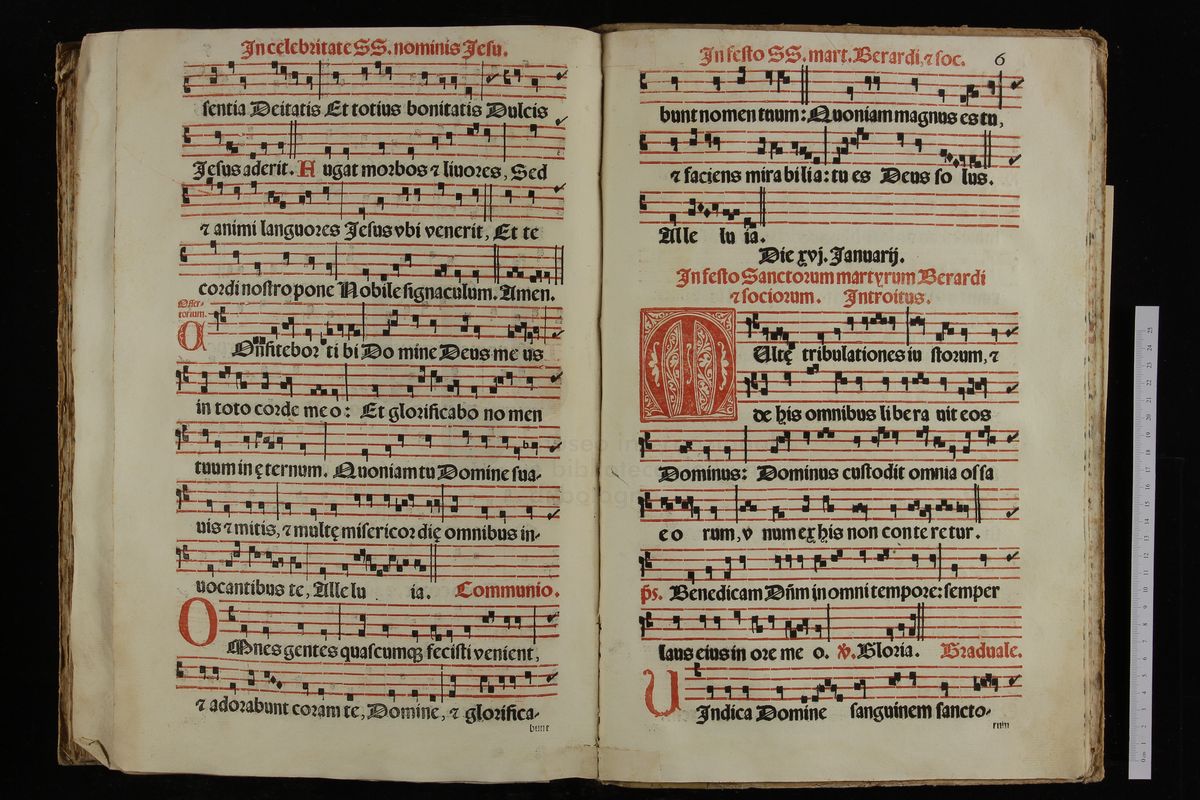 In celebritate SS. nominis Jesu.
sentia Deitatis Et totius bonitatis Dulcis
Jesus aderit. A ugat morbos ⁊ livores, Sed
⁊ animi languores Jesus vbi venerit, Et te
cordi nostro pone Nobile signaculum. Amen.
Offer-
torium.
Onfitebor ti bi Do mine Deus me us
in toto corde me o: Et glorificabo no men
tuum in ę ternum. Quoniam tu Domine sua-
uis ⁊ mitis, ⁊ multę misericor dię omnibus in-
uocantibus te, Alle lu ia. Communio.
O Mnes gentes quascumqꝫ fecisti venient,
⁊ adorabunt coram te, Domine, ⁊ glorifica-
bunt
In festo SS. mart. Berardi, ⁊ soc. 6
bunt nomen tuum: Quoniam magnus es tu,
⁊ faciens mira bilia: tu es Deus so lus.
Alle lu ia.
Die xvj. Januarij.
In festo Sanctorum martyrum Berardi
⁊ sociorum. Introitus.
M Ultę tribulationes iu storum, ⁊
de his omnibus li be ra uit eos
Dominus: Dominus custodit omnia os sa
e o rum, v num ex his non con te re tur.
ps. Benedicam Dn̄m in omni tempore: semper
laus eius in ore me o. ℣. Gloria. Graduale.
U Indica Domine sanguinem sancto-
rum